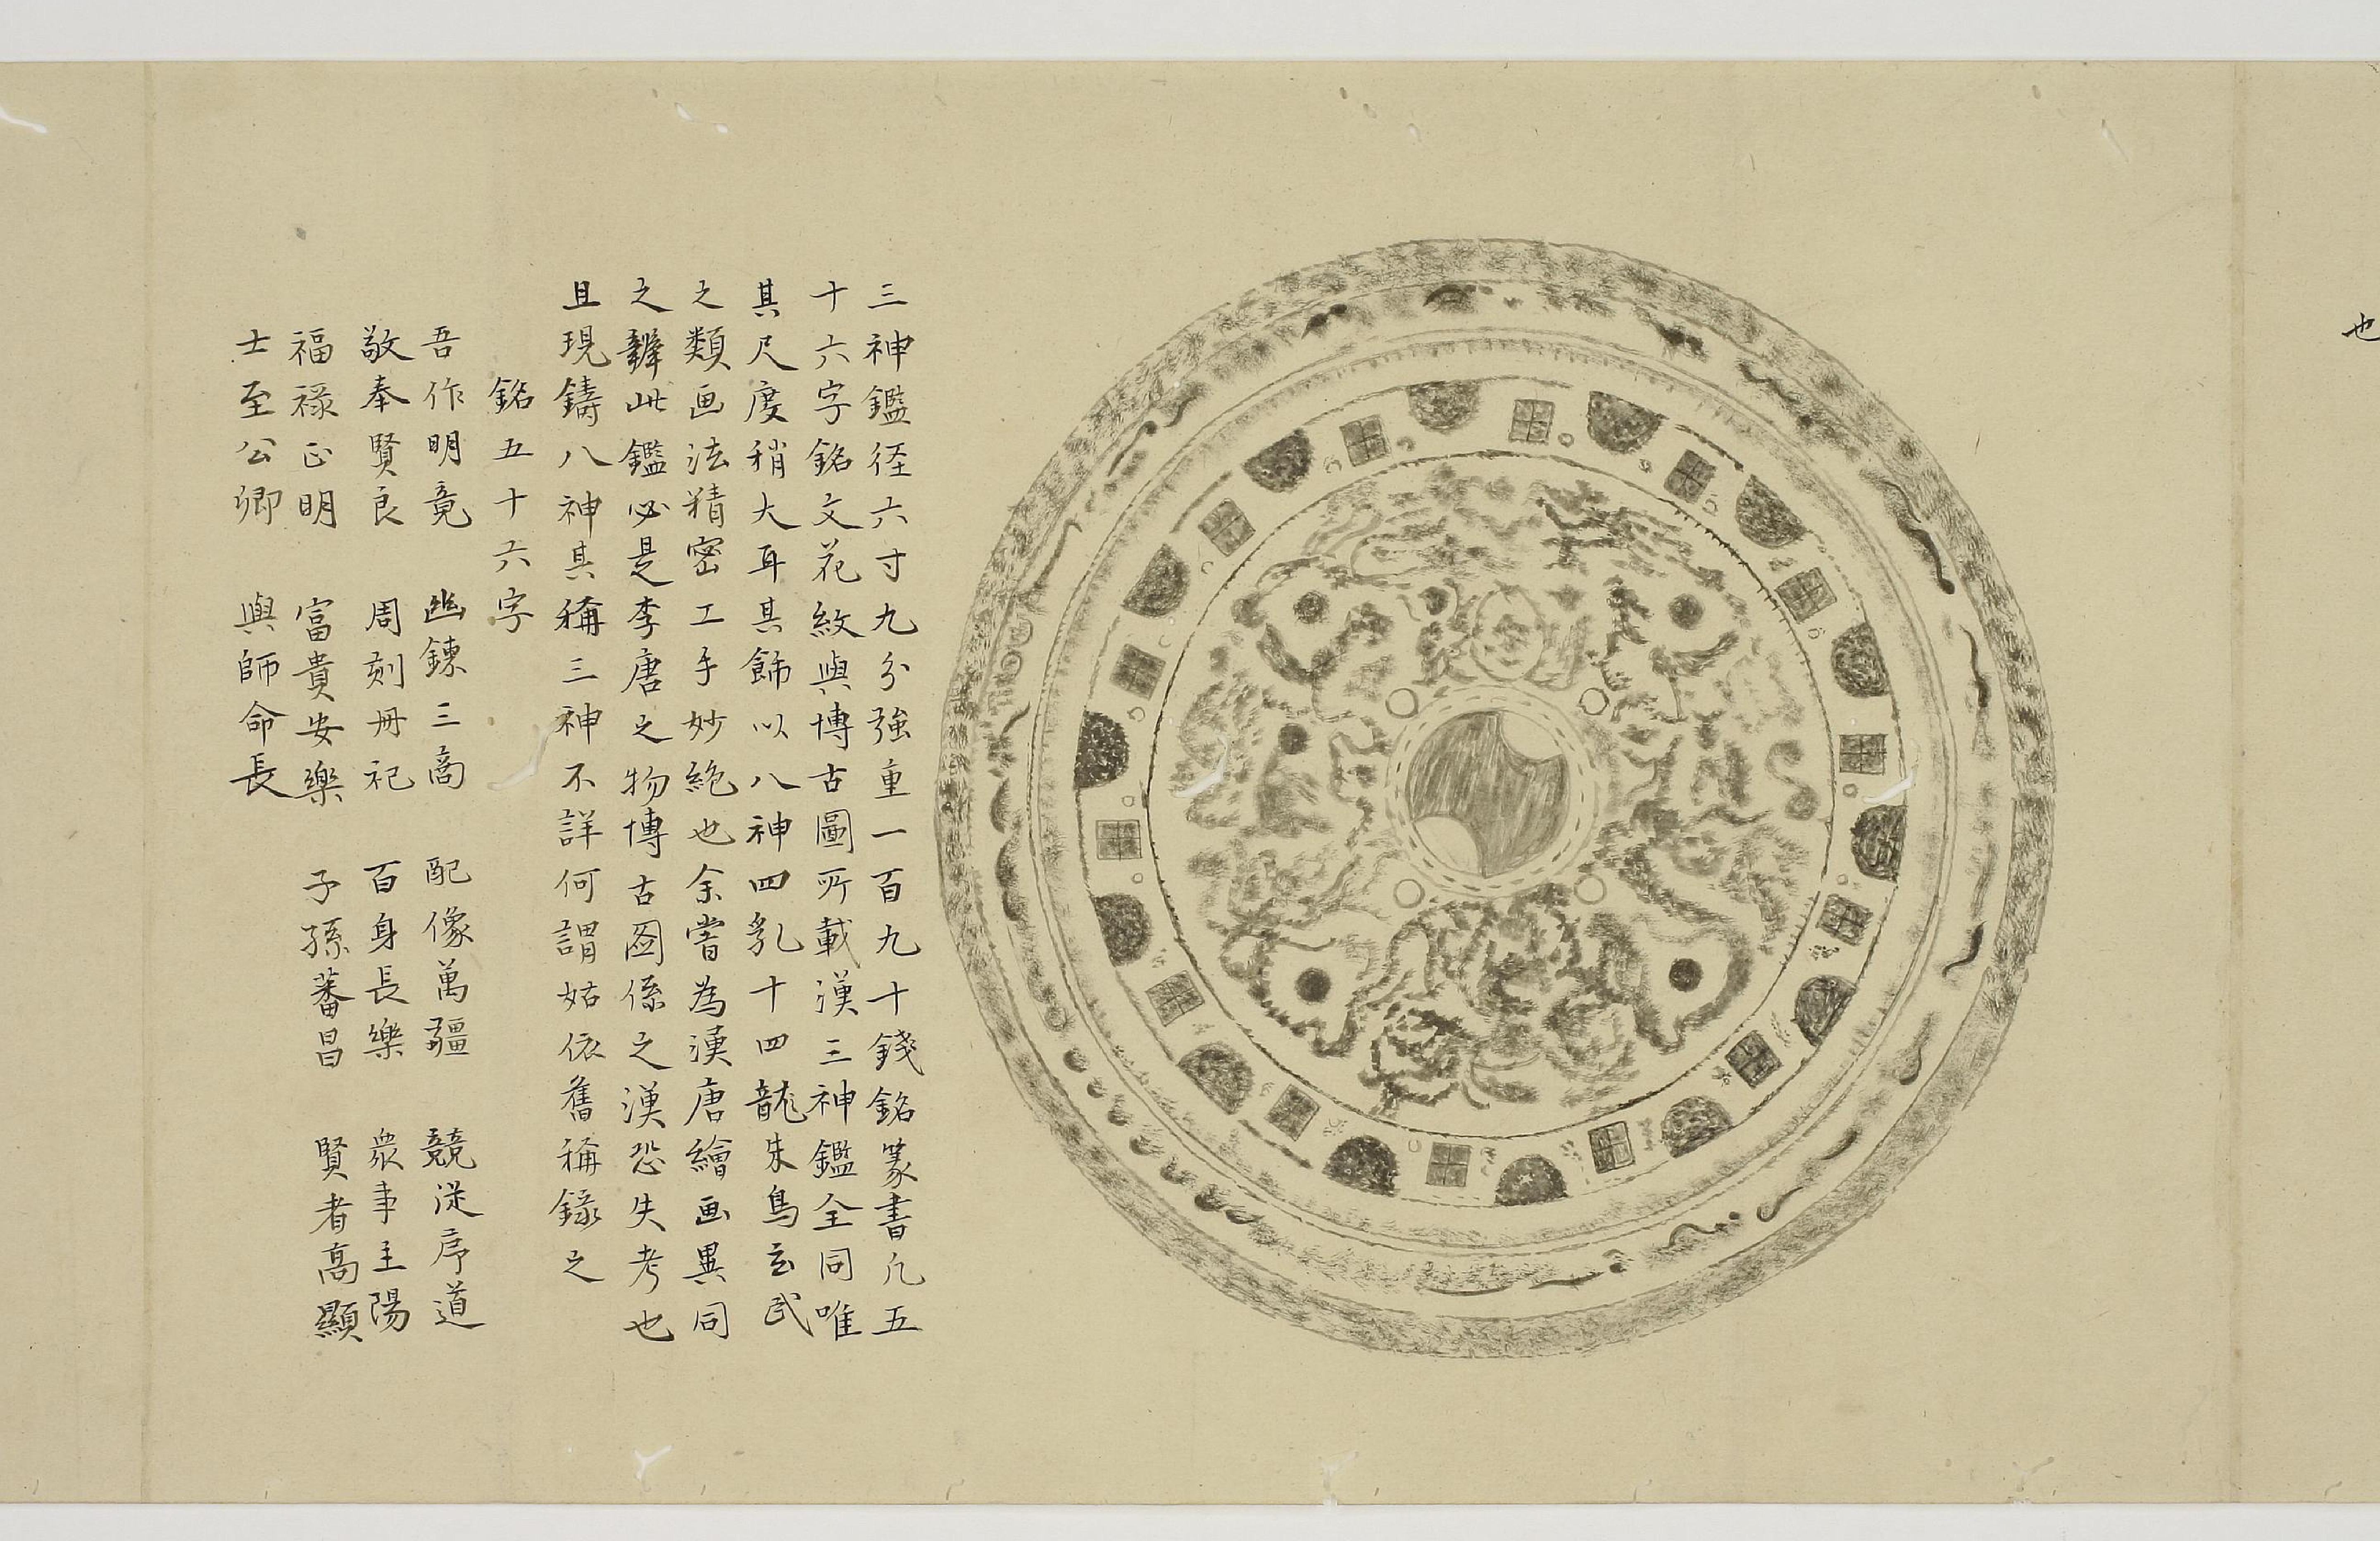 也
三神鑑径六寸九分強重一百九十錢銘篆書凢五
十六字銘文花紋與博古圖所載漢三神鑑全同唯
其尺度稍大耳其飾以八神四乳十四龍朱鳥玄武
之類画法精密工手妙絶也余嘗為漢唐繪画異同
之辨此鑑必是李唐之物博古圖係之漢恐失考也
且現鑄八神其稱三神不詳何謂姑依舊稱錄之
銘五十六字
吾作明竟 幽鍊三商 配像萬疆 競從序道
敬奉賢良 周刻冊祀 百身長樂 衆事主陽
福祿正明 富貴安樂 子孫蕃昌 賢者高顯
士至公卿 與師命長